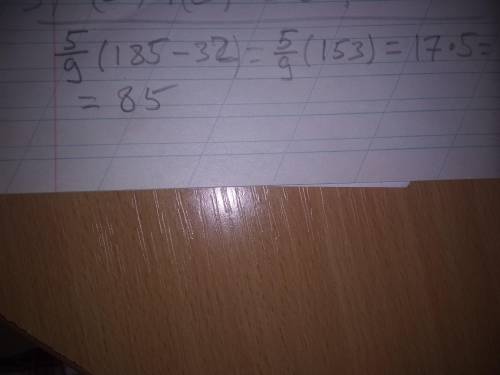 5/9 (185 - 32) = 5/9 (153) = 17 · 5 =
= 85